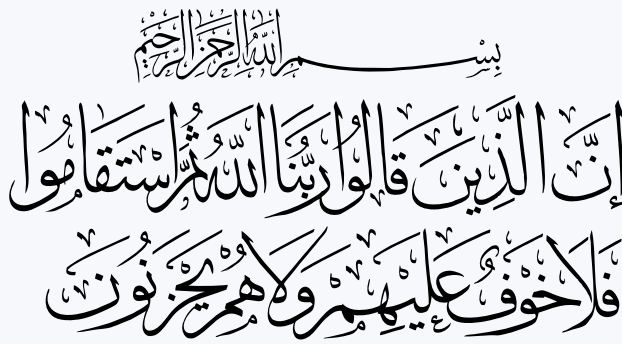 بِسْمِ اللَّهِ الرَّحْمَٰنِ الرَّحِيمِ
إِنَّ الَّذِينَ قَالُوا رَبُّنَا اللَّهُ ثُمَّ اسْتَقَامُوا
فَلَا خَوْفٌ عَلَيْهِمْ وَلَا هُمْ يَحْزَنُونَ